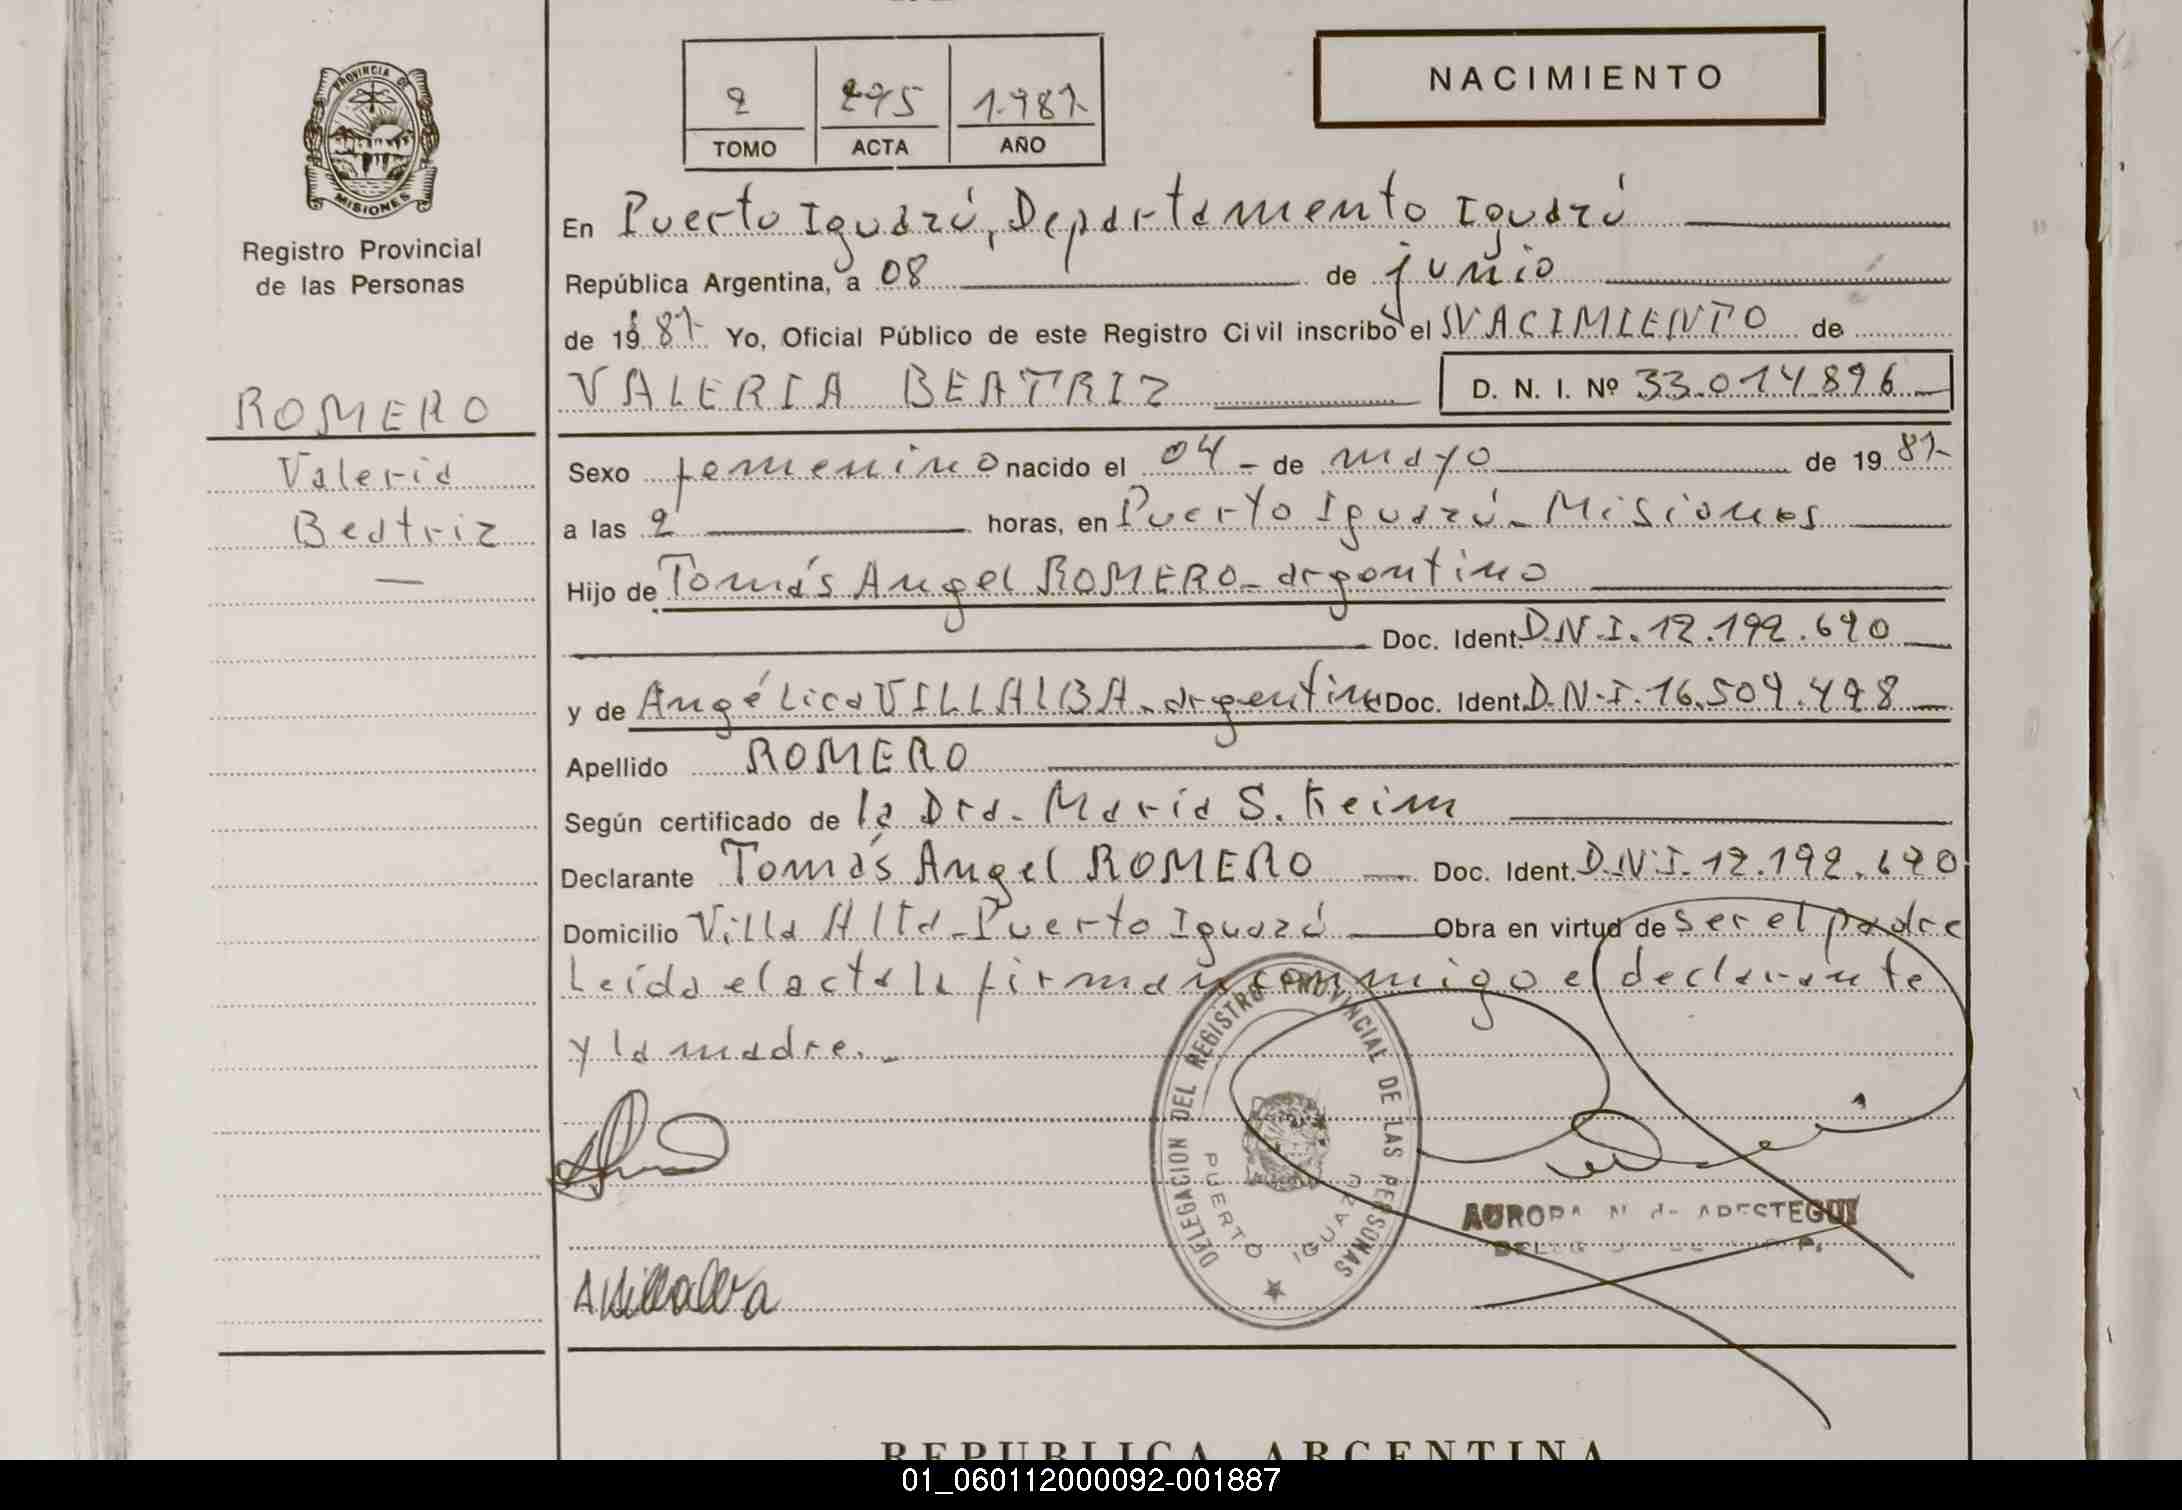 PROVINCIA DE
MISIONES
Registro Provincial
de las Personas
ROMERO
Valeria
Beatriz
2 295 1.987
TOMO ACTA AÑO
NACIMIENTO
En Puerto Iguazú, Departamento Iguazú
República Argentina, a 08 de junio
de 1987 Yo, Oficial Público de este Registro Civil inscribo el NACIMIENTO de
VALERIA BEATRIZ D. N. I. Nº 33.014.896
Sexo femenino nacido el 04 - de mayo de 1987
a las 2 horas, en Puerto Iguazú - Misiones
Hijo de Tomás Angel ROMERO - argentino
Doc. Ident. D.N.I. 12.192.690
y de Angélica VILLALBA - argentina Doc. Ident. D.N.I. 16.509.498
Apellido ROMERO
Según certificado de la Dra. María S. Keim
Declarante Tomás Angel ROMERO Doc. Ident. D.N.I. 12.192.690
Domicilio Villa Alta - Puerto Iguazú Obra en virtud de ser el padre
Leída el acta la firman conmigo el declarante
y la madre. -
DELEGACION DEL REGISTRO PROVINCIAL DE LAS PERSONAS
PUERTO IGUAZU
AURORA N. de ARESTEGUI
AVillalva
REPUBLICA ARGENTINA
01_060112000092-001887